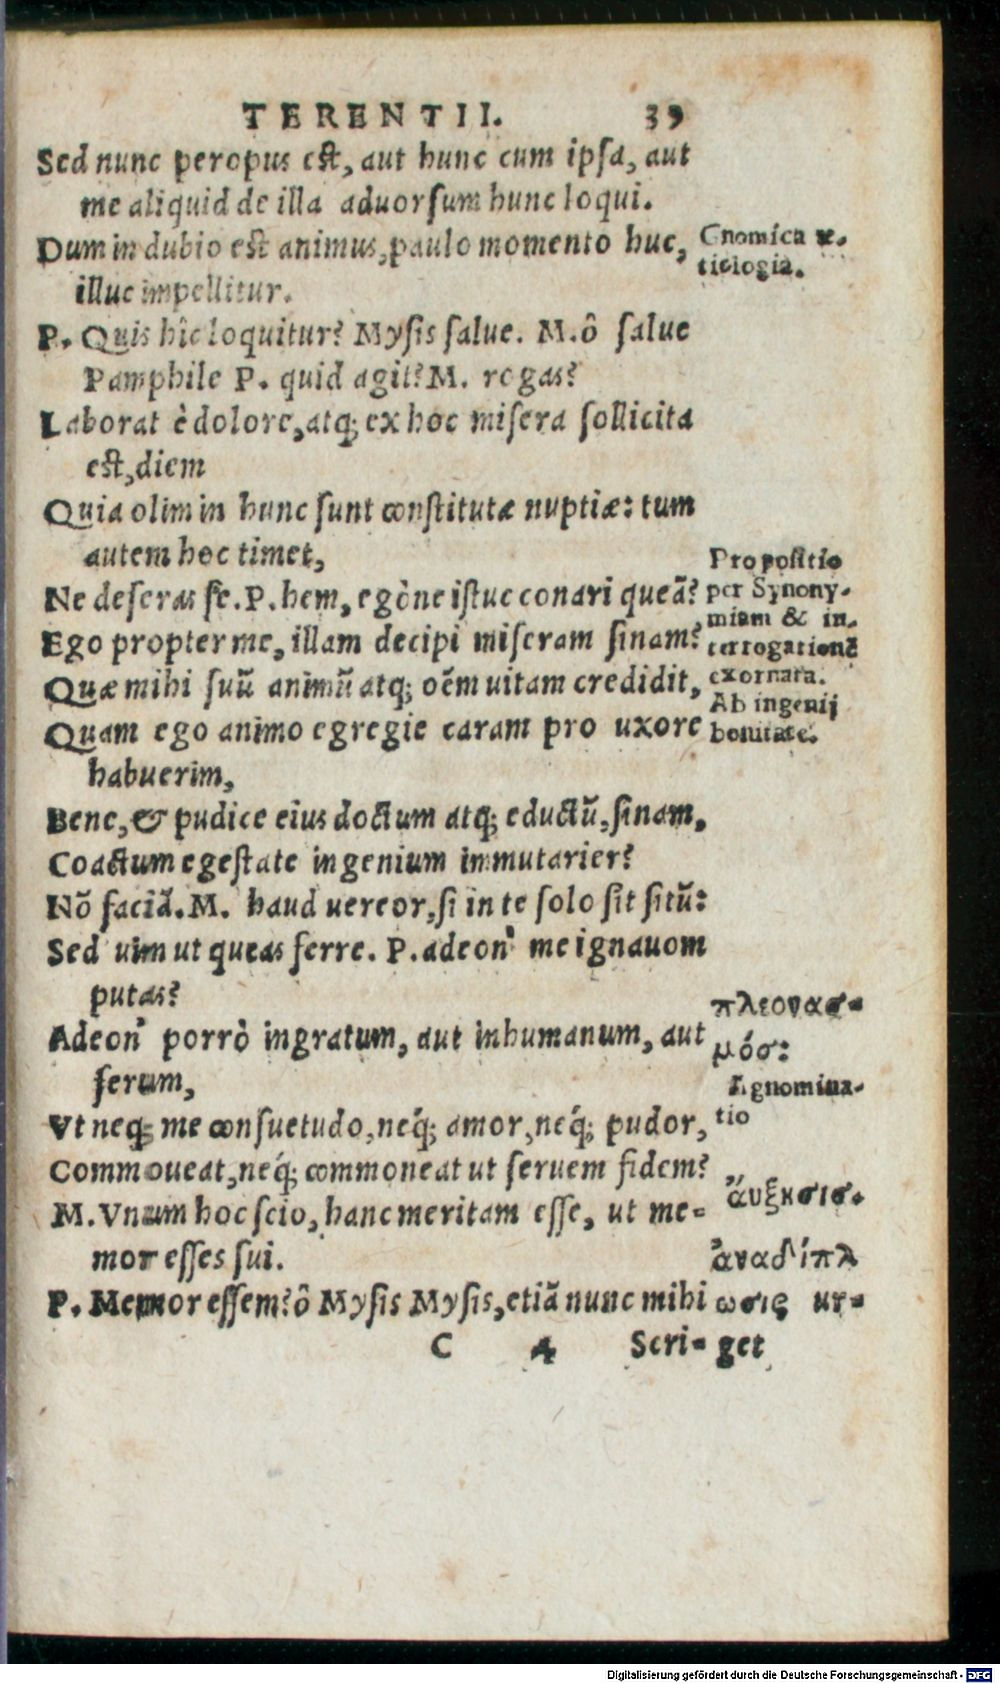 TERENTII. 39
Sed nunc peropus est, aut hunc cum ipsa, aut
me aliquid de illa aduorsum hunc loqui.
Dum in dubio est animus, paulo momento huc,
illuc impellitur.
P. Quis hîc loquitur? Mysis salue. M. ô salue
Pamphile P. quid agit? M. rogas?
Laborat è dolore, atq; ex hoc misera sollicita
est, diem
Quia olim in hunc sunt constitutæ nuptiæ: tum
autem hoc timet,
Ne deseras se. P. hem, egòne istuc conari queã?
Ego propter me, illam decipi miseram sinam?
Quæ mihi suũ animũ atq; oẽm uitam credidit,
Quam ego animo egregie caram pro uxore
habuerim,
Bene, & pudice eius doctum atq; eductũ, sinam,
Coactum egestate ingenium immutarier?
Nõ faciã. M. haud uereor, si in te solo sit sitũ:
Sed uim ut queas ferre. P. adeon' me ignauom
putas?
Adeon' porrò ingratum, aut inhumanum, aut
ferum,
Vt neq; me consuetudo, neq́; amor, neq́; pudor,
Commoueat, neq́; commoneat ut seruem fidem?
M. Vnum hoc scio, hanc meritam esse, ut me-
mor esses sui.
P. Memor essem? ô Mysis Mysis, etiã nunc mihi
C 4 Scri-
Gnomica æ-
tiologia.
Propositio
per Synony-
miam & in-
terrogationẽ
exornata.
Ab ingenij
bonitate.
πλεονασ-
μόσ:
Agnomina-
tio
ἄυξησισ.
ἀναδίπλ
ωσις ur-
get
Digitalisierung gefördert durch die Deutsche Forschungsgemeinschaft - DFG